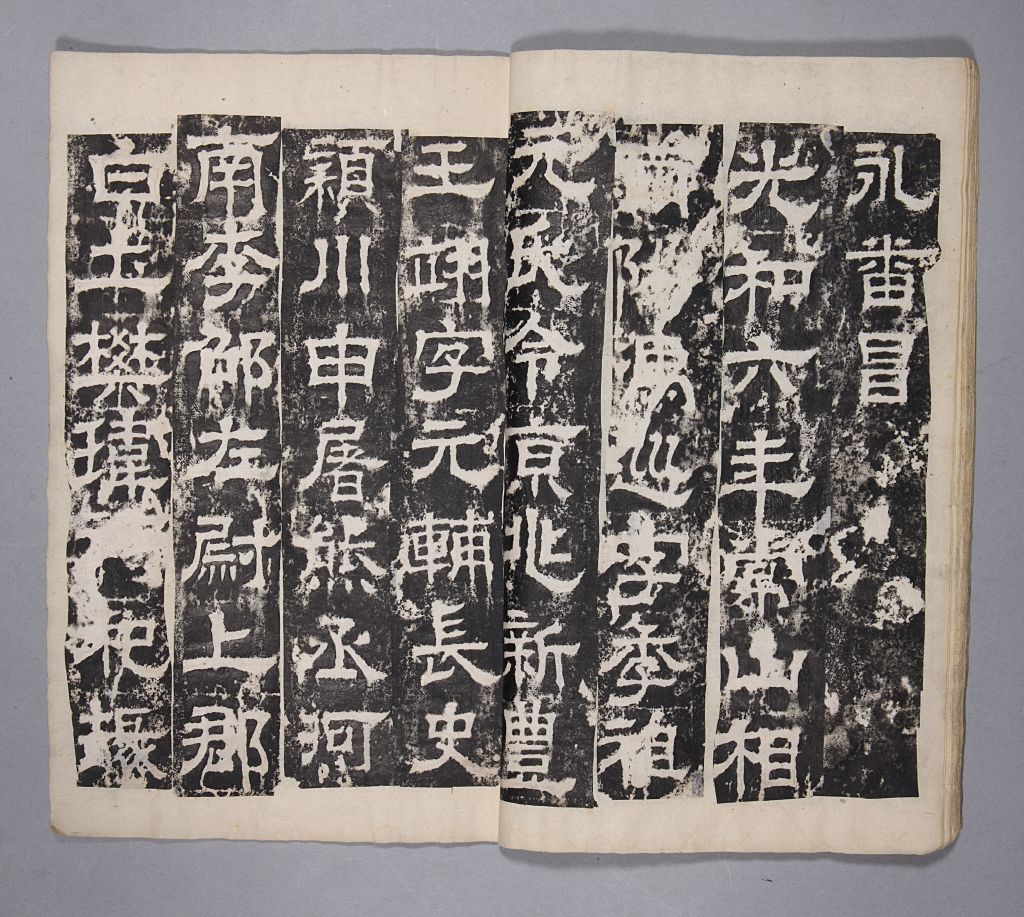 永番昌
光和六年常山相
南陽馮巡字季祖
元氏令京兆新豐
王翊字元輔長史
穎川申屠熊丞河
南李邵左尉上郡
白土樊瑋祀掾